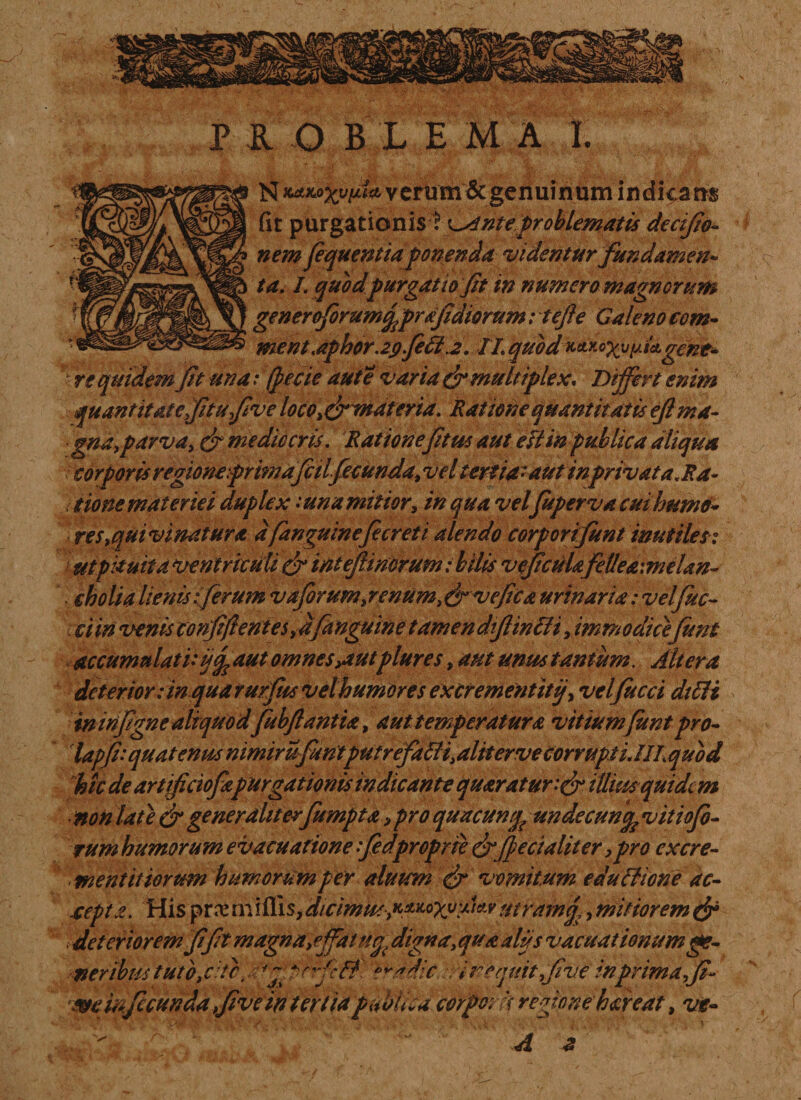 PROBLEMA I.
AN κακοχυμία verum & genuinum indicans
sit purgationis? Ante problematis decisio-
nem sequentia ponenda videntur fundamen-
ta. I. quòd purgatio sit in numero magnorum
generosorumq́; præsidiorum: teste Galeno com-
ment. aphor. 29. sect. 2. II. quòd κακοχυμία gene-
re quidem sit una: specie autē varia & multiplex. Differt enim
quantitate, situ, sive loco, & materia. Ratione quantitatis est ma-
gna, parva, & mediocris. Ratione situs aut est in publica aliqua
corporis regione: prima scil. secunda, vel tertia: aut in privata. Ra-
tione materiei duplex: una mitior, in qua vel supervacui humo-
res, qui vi naturæ à sanguine secreti alendo corpori sunt inutiles:
ut pituita ventriculi & intestinorum: bilis vesiculæ felleæ: melan-
cholia lienis: serum vasorum, renum, & vesicæ urinariæ: vel suc-
ci in venis consistentes, à sanguine tamen distincti, immodicè sunt
accumulati: ijq́; aut omnes, aut plures, aut unus tantùm. Altera
deterior: in qua rursus vel humores excrementitij, vel succi dicti
in insigne aliquod substantiæ, aut temperaturæ vitium sunt pro-
lapsi: quatenus nimirū sunt putrefacti, aliterve corrupti. III. quòd
hîc de artificiosæ purgationis indicante quæratur: & illius quidem
non latè & generaliter sumptæ, pro quacunq́; undecunq́; vitioso-
rum humorum evacuatione: sed propriè & specialiter, pro excre-
mentitiorum humorum per alvum & vomitum eductione ac-
ceptæ. His præmissis, dicimus, κακοχυμίαν utramq́;, mitiorem &
deteriorem si sit magna, effatuq́; digna, quæ alijs vacuationum ge-
neribus tutò, citò, atq; perfectè eradicari nequit, sive in prima, si-
ve in secunda, sive in tertia publica corporis regione hæreat, ve-
A 2